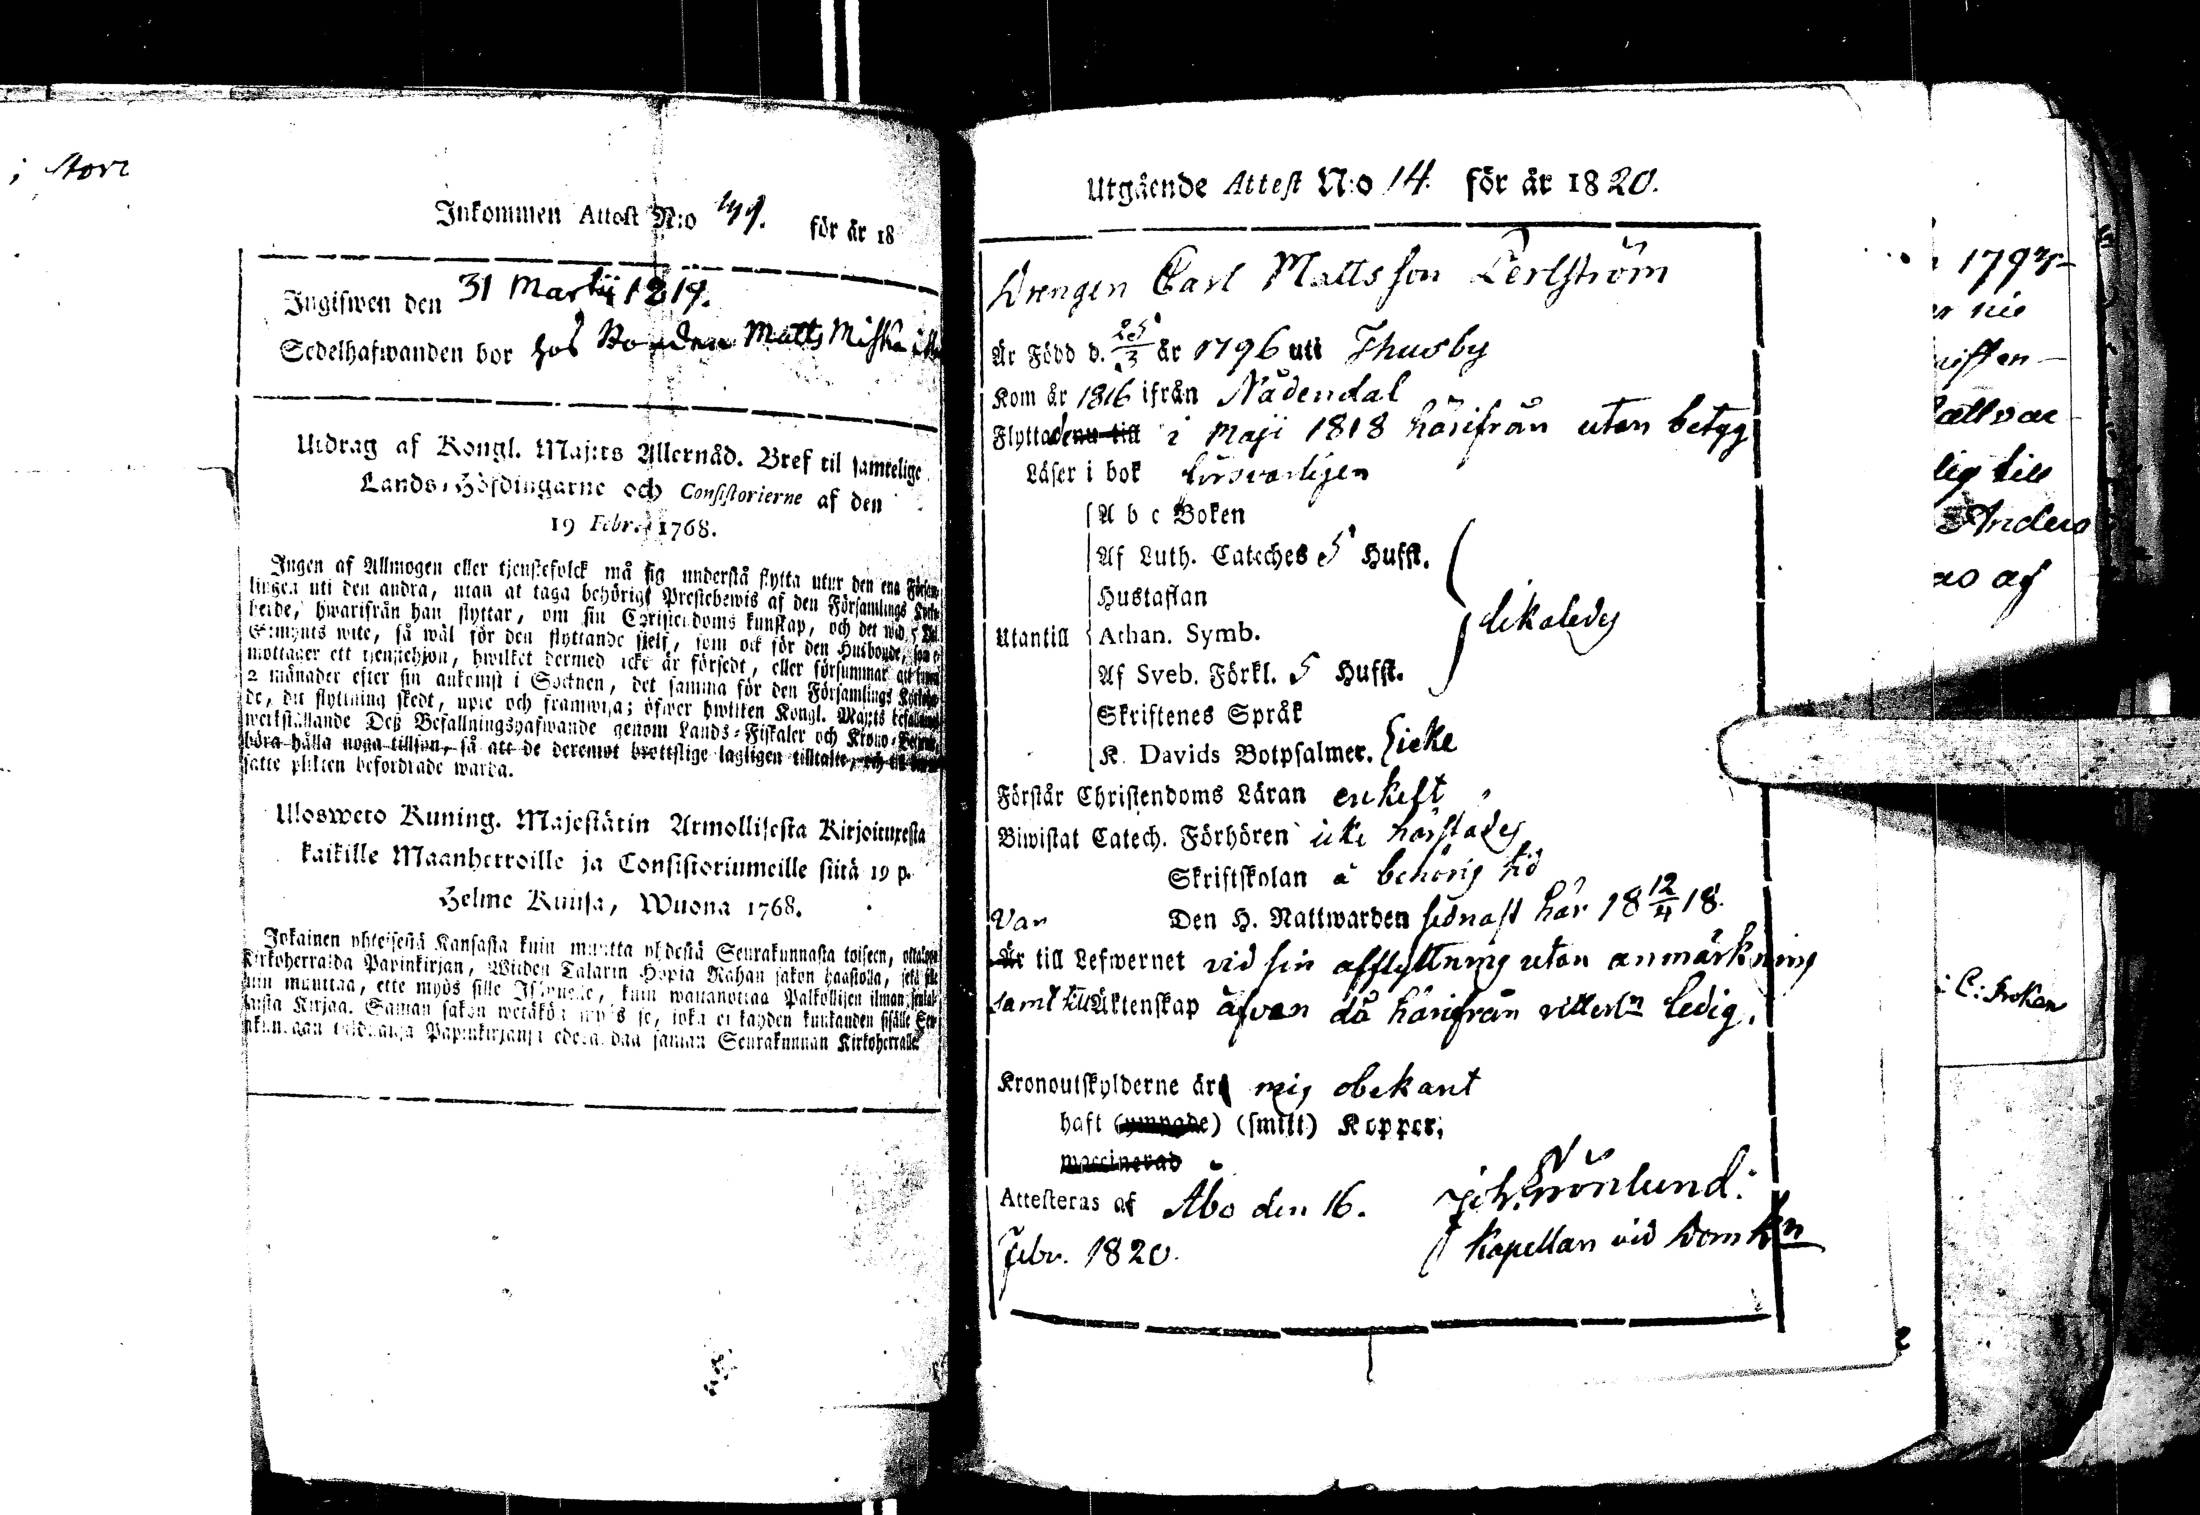 ; Stor
Inkommen Attest N:o för år 18
Ingifwen den 31 Martij 1819.
Sedelhafwanden bor hos Bonden Matts
Utdrag af Kongl. Maj:ts Allernåd. Bref til samtelige
Lands-Höfdingarne och Consistorierne af den
19 Febr. 1768.
Ingen af Allmogen eller tjenstefolck må sig understå flytta utur den ena Försam-
lingen uti den andra, utan at taga behörigt Prestebewis af den Församlings Kyrko-
herde, hwarifrån han flyttar, om sin Christendoms kunskap, och det wid 5 Dal.
S:mynts wite, så wäl för den flyttande sjelf, som ock för den Husbonde, som e
mottager ett tjenstehjon, hwilket dermed icke är försedt, eller försummar att inom
2 månader efter sin ankomst i Socknen, det samma för den Församlings Kyrkoher-
de, dit flyttning skedt, upte och framwisa; öfwer hwilken Kongl. Maj:ts befallning
werkställande Deß Befallningshafwande genom Lands-Fiskaler och Krono-Betjente
böra hålla noga tillsyn, så att de deremot brottslige lagligen tilltalte, och til
satte plikten befordrade warda.
Ulosweto Kuning. Majestätin Armollisesta Kirjoituxesta
kaikille Maanherroille ja Consistoriumeille siitä 19 p.
Helme Kuusa, Wuona 1768.
Jokainen yhteisestä Kansasta kuin muutta yhdestä Seurakunnasta toiseen, ottakoon
Kirkoherralda Papinkirjan, Wiiden Talarin Hopia Rahan sakon haastolla, sekä sille
kuin muuttaa, ette myös sille Isännelle, kuin wastanottaa Palkollisen ilman senkal-
taista Kirjaa. Saman sakon wetäköön myös se, joka ei kahden kuukauden sisälle Seu-
rakundaan tulduansa Papinkirjansa edesanda saman Seurakunnan Kirkoherralle.
Utgående Attest N:o 14. för år 1820.
Drengen Carl Mattsson Perlström
Är Född d. 25/3 år 1796 uti Thusby
Kom år 1816 ifrån Nådendal
Flyttade nu till i Maji 1818 härifrån utan betyg
Läser i bok försvarligen
A b c Boken
Af Luth. Cateches 5 Hufst.
Hustaflan
Utantill Athan. Symb. likaledes
Af Sveb. Förkl. 5 Hufst.
Skriftenes Språk
K. Davids Botpsalmer. icke
Förstår Christendoms Läran enkelt
Biwistat Catech. Förhören icke härstädes
Skriftskolan å behörig tid
Var Den H. Nattwarden sednast här 18 12/4 18.
Är till Lefwernet vid sin afflyttning utan anmärkning
samt till Äktenskap äfven då härifrån vitterln ledig.
Kronoutskylderne är mig obekant
haft (ympade) (smitt) Koppor,
waccinerad
Attesteras af Åbo den 16. Joh. Grönlund.
Febr. 1820. Kapellan vid Domkn
1793
till
Anders
af